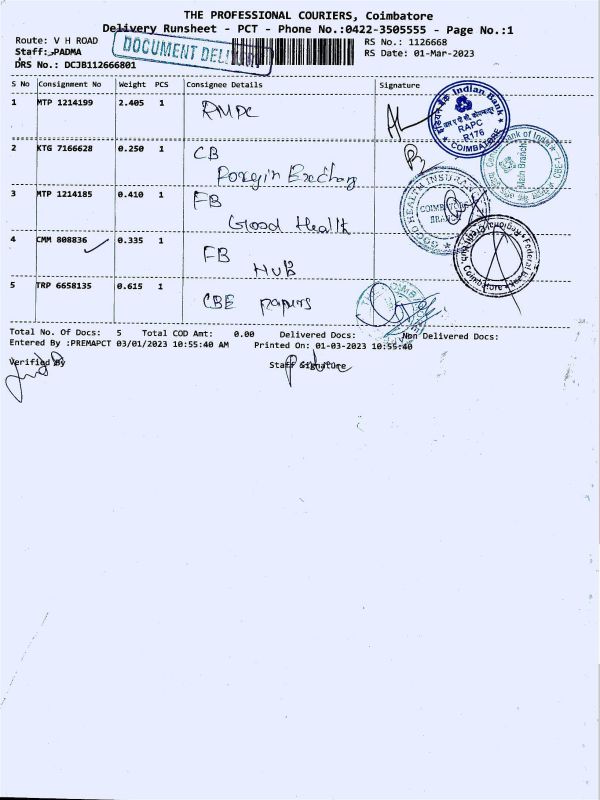 THE PROFESSIONAL COURIERS, Coimbatore
Delivery Runsheet - PCT - Phone No.:0422-3505555 - Page No.:1
Route: V H ROAD
DOCUMENT DEL
RS No.: 1126668
Staff: PADMA
RS Date: 01-Mar-2023
DRS No.: DCJB112666801
S No Consignment No Weight PCS Consignee Details Signature
1 MTP 1214199 2.405 1 RMPC
Indian Bank
RAPC
R176
COIMBATORE
2 KTG 7166628 0.250 1 CB
Bank of India
Main Branch
3 MTP 1214185 0.410 1 FB
Good Health
HEALTH INSURA
4 CMM 808836 0.335 1 FB
HUB
Coimbatore
Federal
5 TRP 6658135 0.615 1 CBE papers
Total No. Of Docs: 5 Total COD Amt: 0.00 Delivered Docs: Non Delivered Docs:
Entered By :PREMAPCT 03/01/2023 10:55:40 AM Printed On: 01-03-2023 10:55:40
Verified By Staff Signature